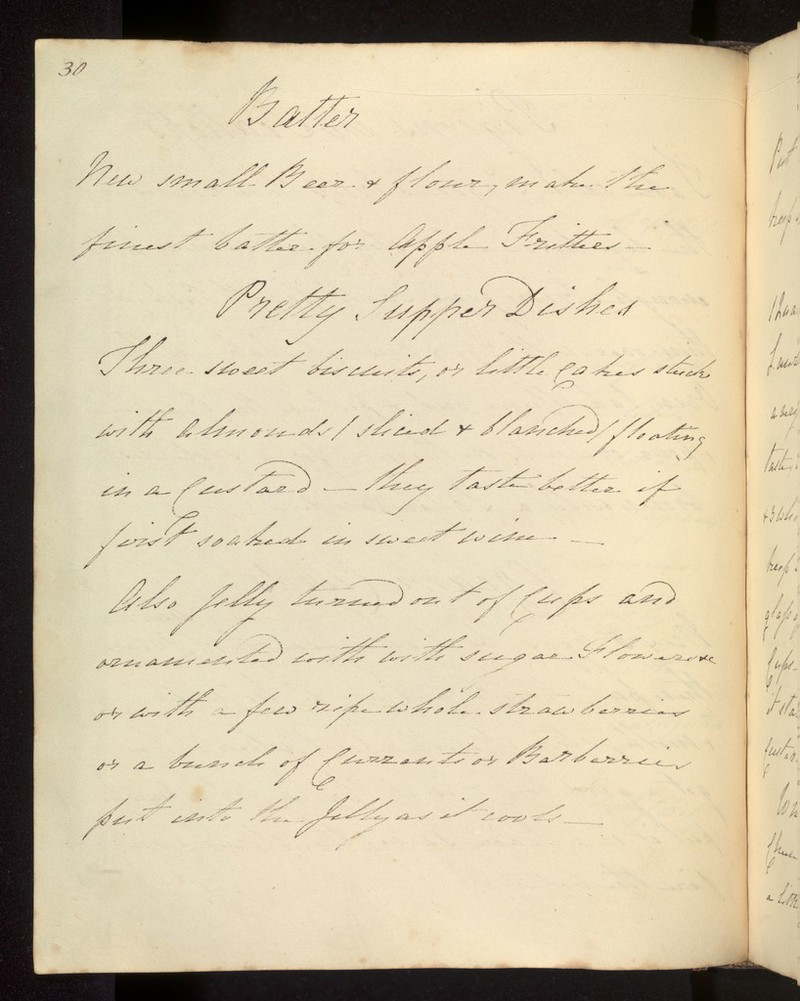 30
Batter
New small Beer & flour, make the
finest batter for Apple Fritters —
Pretty Supper Dishes
Three sweet biscuits, or little Cakes stuck
with Almonds / sliced & blanched / floating
in a Custard — they taste better if
first soaked in sweet wine —
Also Jelly turned out of Cups and
ornamented with with sugar Flowers &c
or with a few ripe whole strawberries
or a bunch of Currants or Barberries
put into the Jelly as it cools —